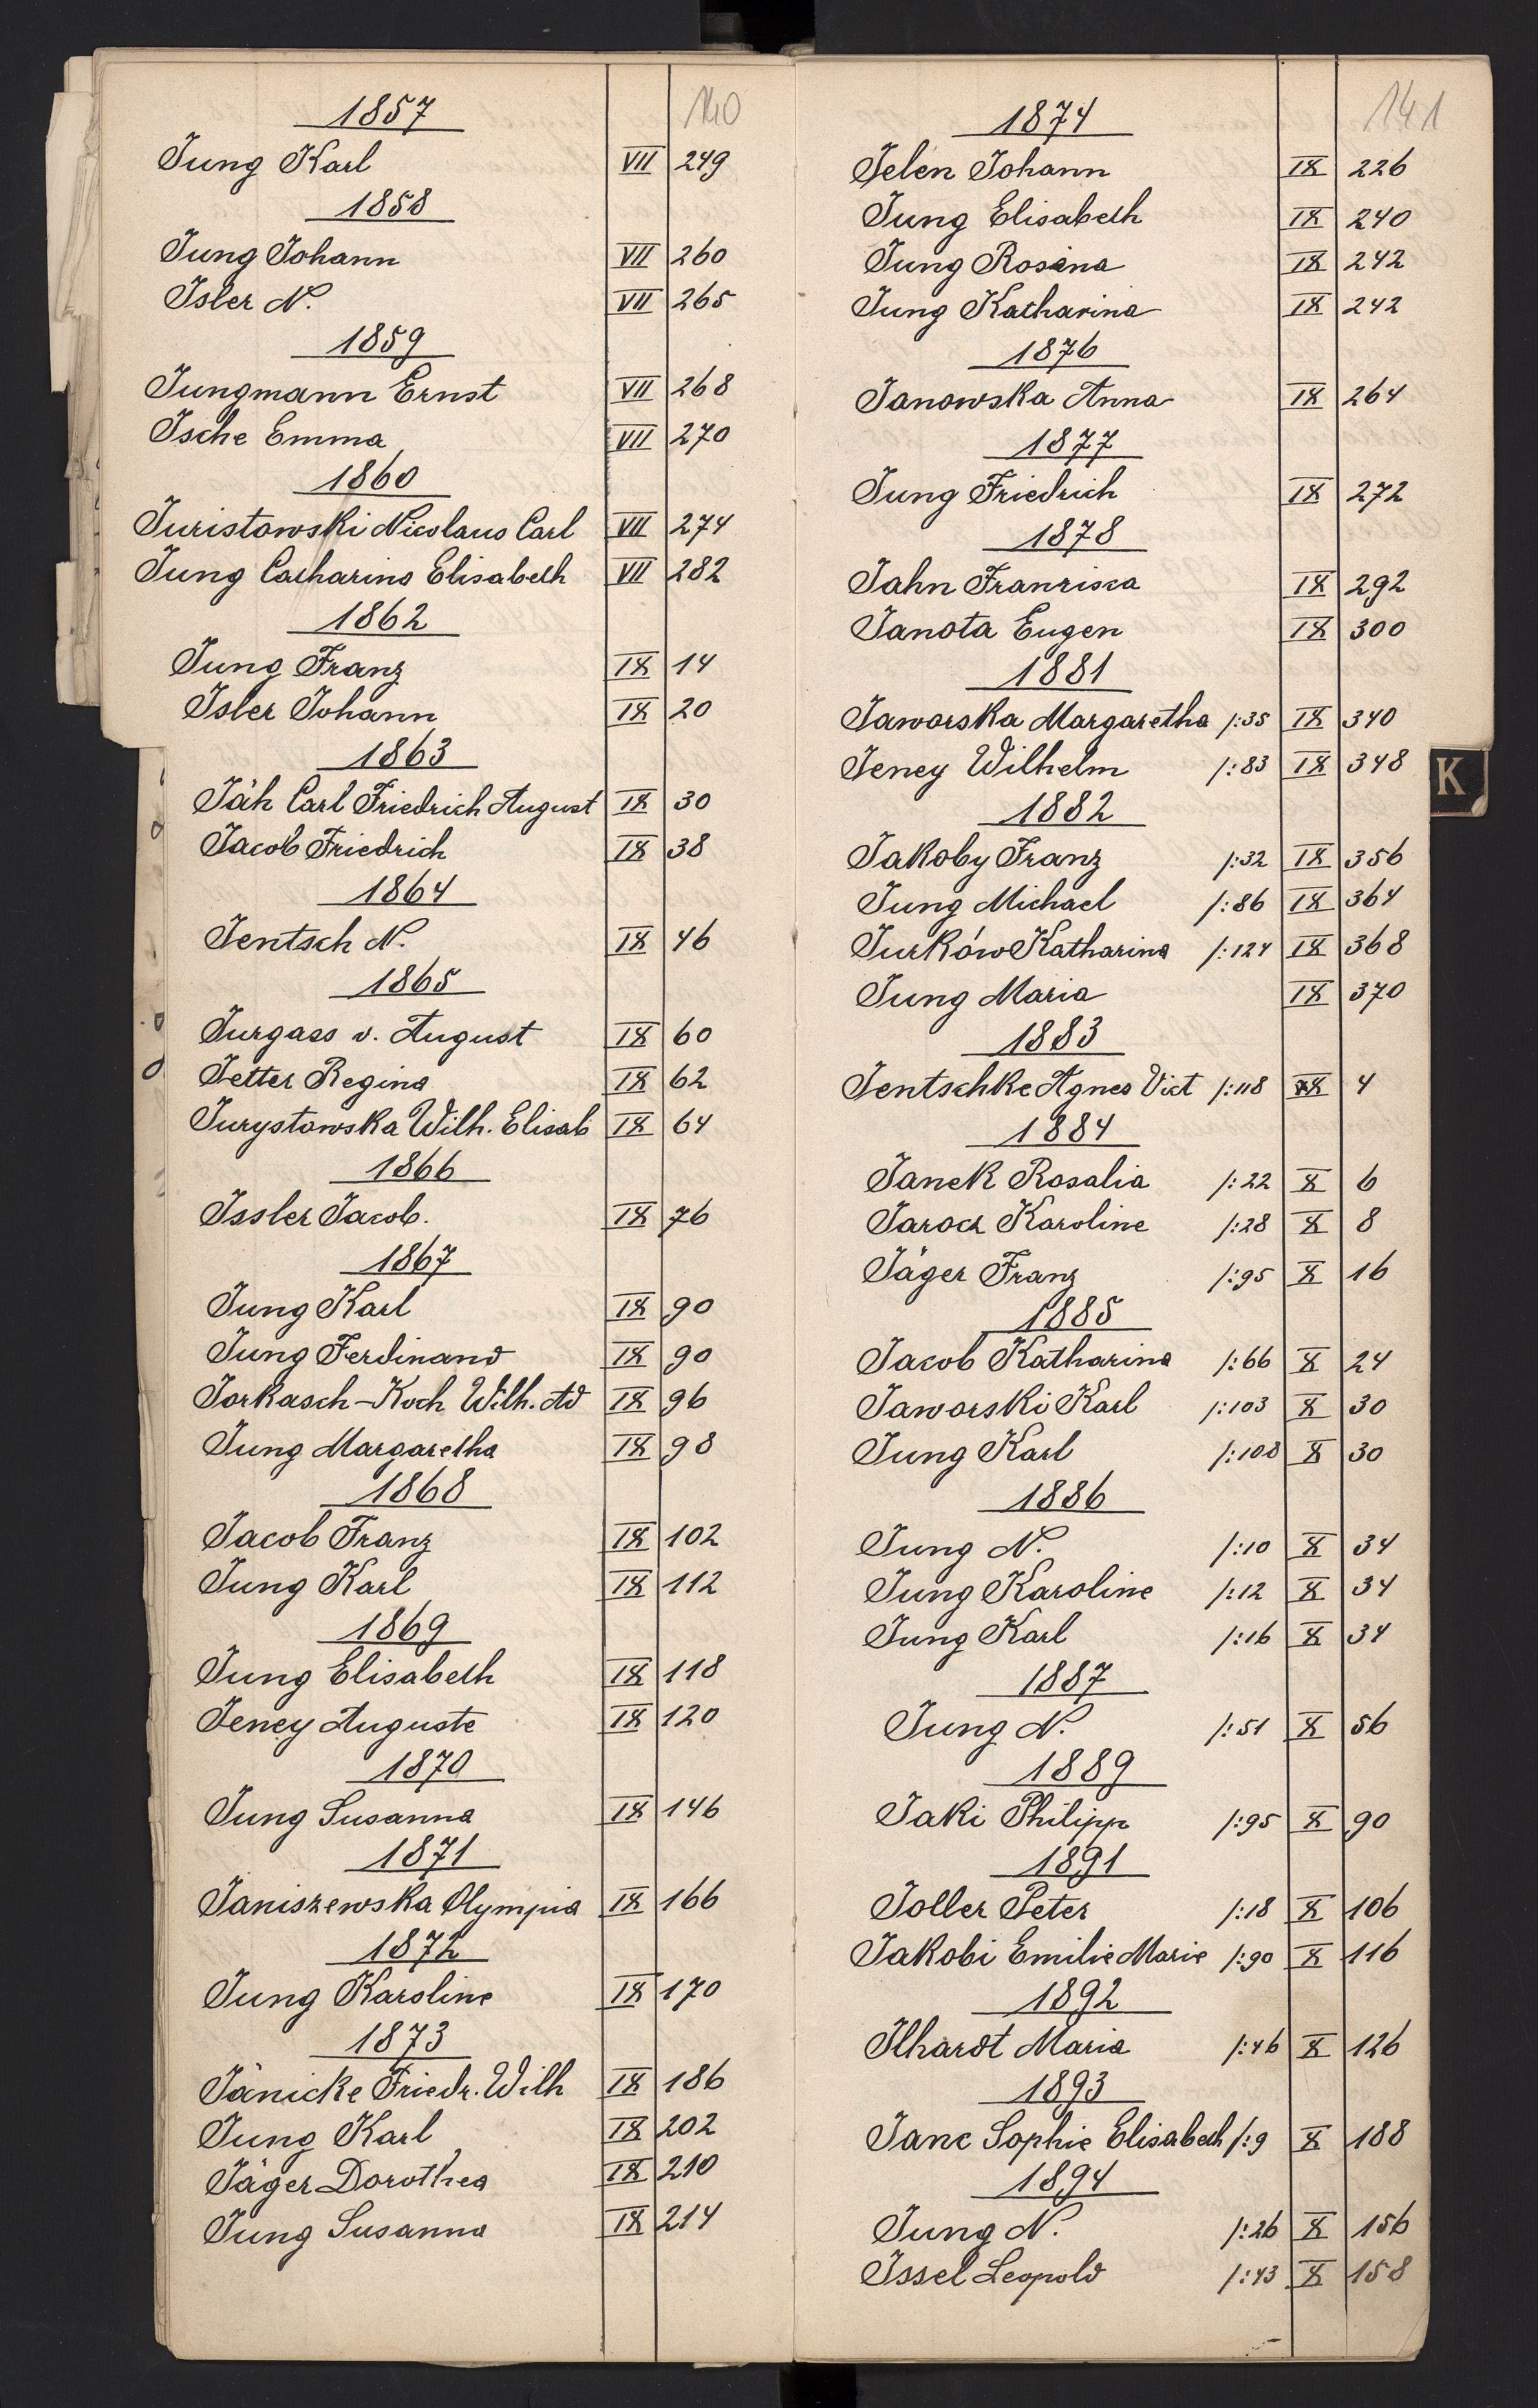 140
1857
Jung Karl VII 249
1858
Jung Johann VII 260
Isler N. VII 265
1859
Jungmann Ernst VII 268
Ische Emma VII 270
1860
Juristowski Nicolaus Carl VII 274
Jung Catharina Elisabeth VII 282
1862
Jung Franz IX 14
Isler Johann IX 20
1863
Jäh Carl Friedrich August IX 30
Jacob Friedrich IX 38
1864
Jentsch N. IX 46
1865
Jurgass v. August IX 60
Jetter Regina IX 62
Jurystowska Wilh. Elisab IX 64
1866
Issler Jacob. IX 76
1867
Jung Karl IX 90
Jung Ferdinand IX 90
Jorkasch-Koch Wilh. Ad IX 96
Jung Margaretha IX 98
1868
Jacob Franz IX 102
Jung Karl IX 112
1869
Jung Elisabeth IX 118
Jeney Auguste IX 120
1870
Jung Susanna IX 146
1871
Janiszewska Olympia IX 166
1872
Jung Karoline IX 170
1873
Jänicke Friedr. Wilh IX 186
Jung Karl IX 202
Jäger Dorothea IX 210
Jung Susanna IX 214
141
1874
Jelen Johann IX 226
Jung Elisabeth IX 240
Jung Rosina IX 242
Jung Katharina IX 242
1876
Janowska Anna IX 264
1877
Jung Friedrich IX 272
1878
Jahn Franzisca IX 292
Janota Eugen IX 300
1881
Jaworska Margaretha /:35 IX 340
Jeney Wilhelm /:83 IX 348
K
1882
Jakoby Franz /:32 IX 356
Jung Michael /:86 IX 364
Jurków Katharina /:124 IX 368
Jung Maria IX 370
1883
Jentschke Agnes Vict /:118 X 4
1884
Janek Rosalia /:22 X 6
Jarocz Karoline /:28 X 8
Jäger Franz /:95 X 16
1885
Jacob Katharina /:66 X 24
Jaworski Karl /:103 X 30
Jung Karl /:108 X 30
1886
Jung N. /:10 X 34
Jung Karoline /:12 X 34
Jung Karl /:16 X 34
1887
Jung N. /:51 X 56
1889
Jaki Philipp /:95 X 90
1891
Joller Peter /:18 X 106
Jakobi Emilie Marie /:90 X 116
1892
Ilhardt Maria /:46 X 126
1893
Jane Sophie Elisabeth /:9 X 188
1894
Jung N. /:26 X 156
Issel Leopold /:43 X 158